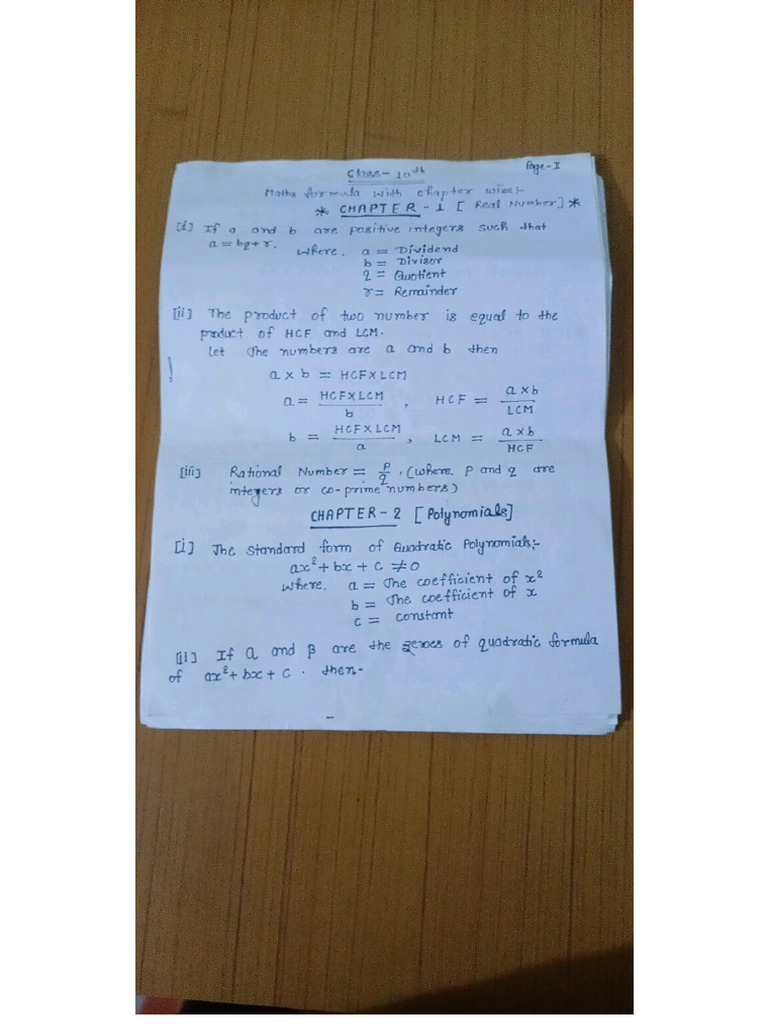 Page-I
Class-10th
Maths formula with chapter wise:-
* CHAPTER-1 [Real Number] *
[i] If a and b are positive integers such that
a = bq + r. Where, a = Dividend
b = Divisor
q = Quotient
r = Remainder
[ii] The product of two number is equal to the
product of HCF and LCM.
Let The numbers are a and b then
a × b = HCF×LCM
a = HCF×LCM / b , HCF = a×b / LCM
b = HCF×LCM / a , LCM = a×b / HCF
[iii] Rational Number = p/q, (where, P and q are
integers or co-prime numbers)
CHAPTER-2 [Polynomials]
[i] The standard form of Quadratic Polynomials:-
ax² + bx + c ≠ 0
Where, a = The coefficient of x²
b = The coefficient of x
c = constant
[ii] If α and β are the zeroes of quadratic formula
of ax² + bx + c . then-